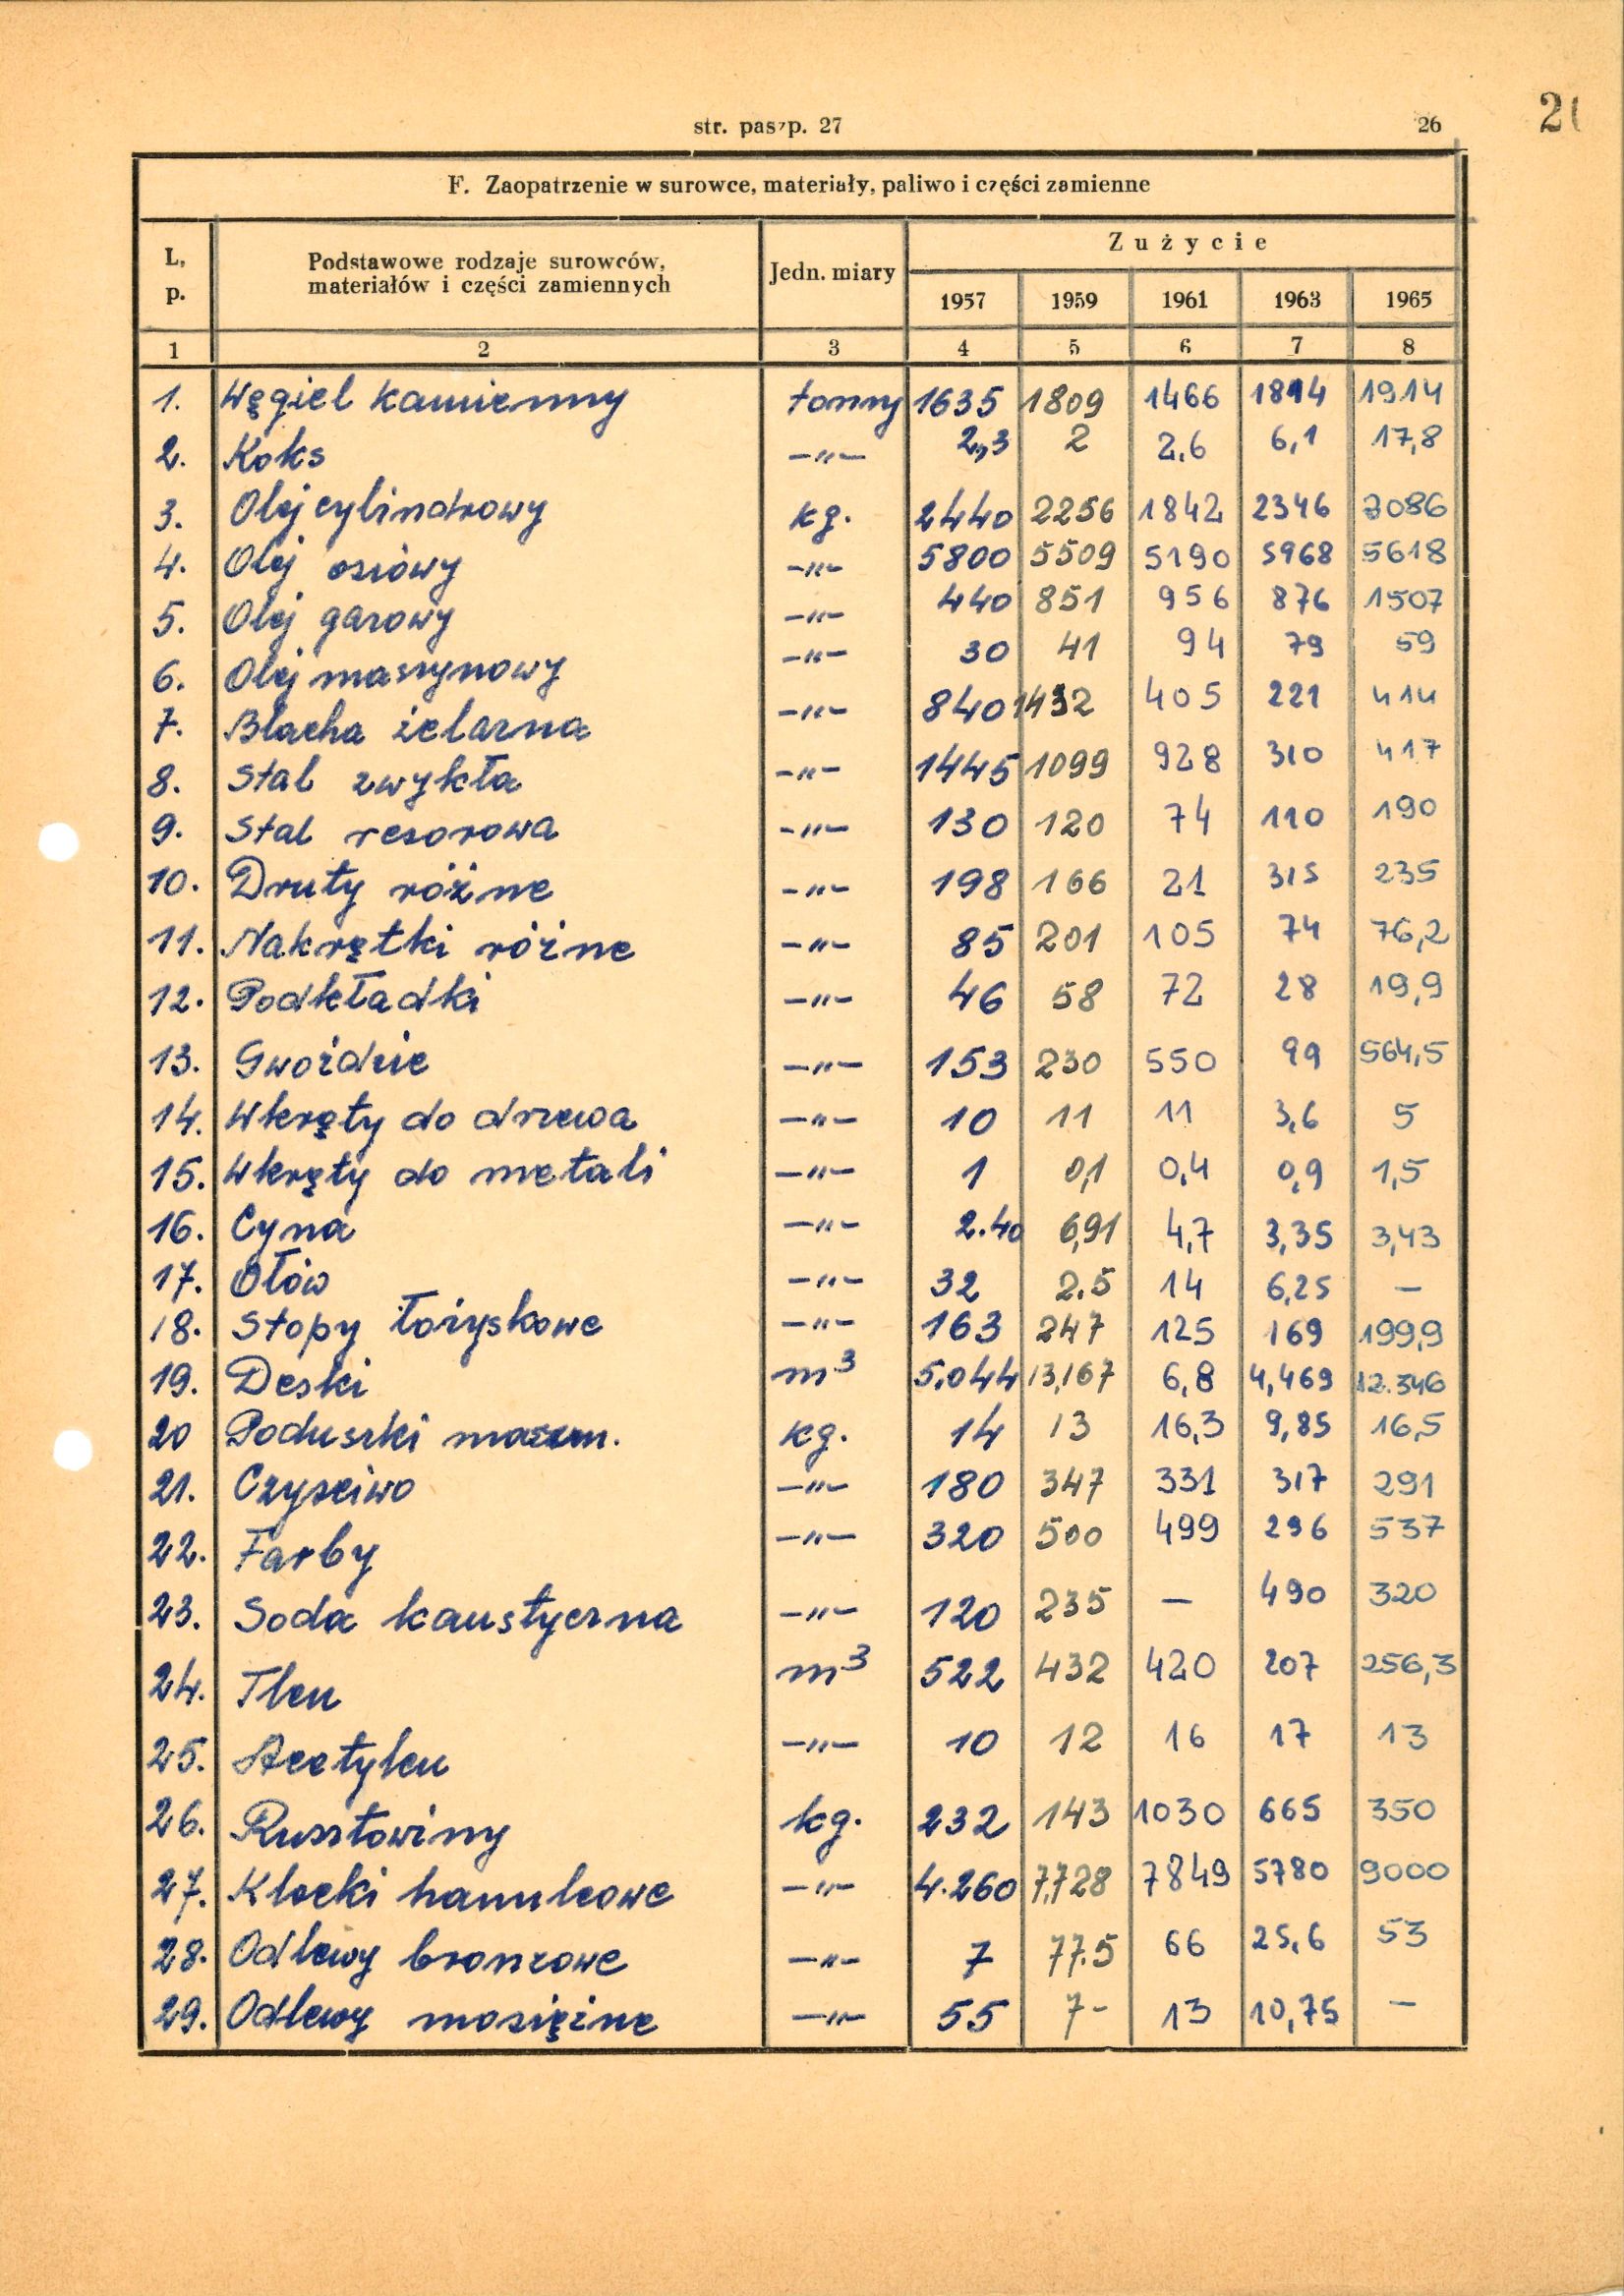 str. paszp. 27 26
F. Zaopatrzenie w surowce, materiały, paliwo i części zamienne
L. p. Podstawowe rodzaje surowców, materiałów i części zamiennych Jedn. miary Zużycie
1957 1959 1961 1963 1965
1 2 3 4 5 6 7 8
1. Węgiel kamienny tonny 1635 1809 1466 1894 1914
2. Koks —"— 2,3 2 2,6 6,1 17,8
3. Olej cylindrowy kg. 2440 2256 1842 2346 2086
4. Olej osiowy —"— 5800 5509 5190 5968 5618
5. Olej gazowy —"— 440 851 956 876 1507
6. Olej maszynowy —"— 30 41 94 79 59
7. Blacha żelazna —"— 840 1432 405 221 414
8. Stal zwykła —"— 1445 1099 928 310 417
9. Stal resorowa —"— 130 120 74 110 190
10. Druty różne —"— 198 166 21 315 235
11. Nakrętki różne —"— 85 201 105 74 76,2
12. Podkładki —"— 46 58 72 28 19,9
13. Gwoździe —"— 153 230 550 99 564,5
14. Wkręty do drzewa —"— 10 11 11 3,6 5
15. Wkręty do metali —"— 1 0,1 0,4 0,9 1,5
16. Cyna —"— 2.40 6,91 4,7 3,35 3,43
17. Ołów —"— 32 2.5 14 6,25 —
18. Stopy łożyskowe —"— 163 247 125 169 199,9
19. Deski m³ 5,044 13,167 6,8 4,469 12.346
20 Poduszki kg. 14 13 16,3 9,85 16,5
21. Czyściwo —"— 180 347 331 317 291
22. Farby —"— 320 500 499 296 537
23. Soda kaustyczna —"— 120 235 — 490 320
24. Tlen m³ 522 432 420 207 256,3
25. Acetylen —"— 10 12 16 17 13
26. Rusztowiny kg. 232 143 1030 665 350
27. Klocki hamulcowe —"— 4.260 7,728 7849 5780 9000
28. Odlewy bronzowe —"— 7 77.5 66 25,6 53
29. Odlewy mosiężne —"— 55 7- 13 10,75 —